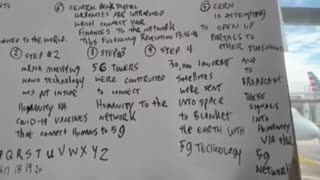 ⑥ CENTRAL BANK DIGITAL
CURRENCIES ARE INTRODUCED
WHICH CONNECT YOUR
FINANCES TO THE NETWORK
THUS FULFILLING REVELATION 13:16-18
NNECTED TO THE WORLD.
⑤ CERN
IS ATTEMPTING
TO OPEN UP
PORTALS TO
OTHER DIMENSIONS
AND TO
BROADCAST
THESE
SIGNALS
INTO
HUMANITY
VIA THE
5G
NETWORK
② STEP #2
MRNA
NANO TECHNOLOGY
WAS PUT INSIDE
HUMANITY VIA
COVID-19 VACCINES
THAT CONNECT HUMANS TO 5G
③ STEP #3
5G TOWERS
WERE CONSTRUCTED
TO CONNECT
HUMANITY TO THE
NETWORK
④ STEP 4
30,000
SATELLITES
WERE SENT
INTO SPACE
TO BLANKET
THE EARTH WITH
5G TECHNOLOGY
PQRSTUVWXYZ
16 17 18 19 20